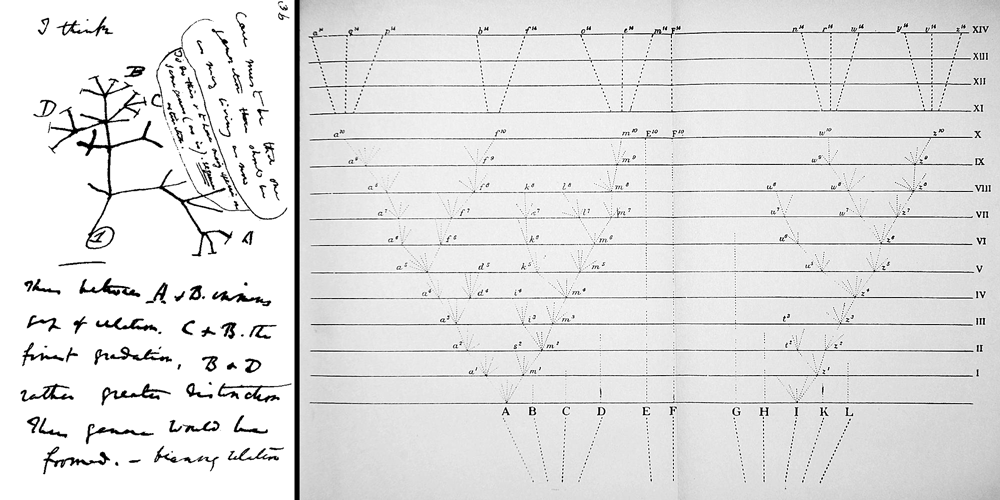 36
I think
Case must be that one
generation then should be
as many living as now
To do this & to have many species in
same genus (as is) requires
extinction.
B
D
C
A
1
Thus between A & B. immens
gap of relation. C & B. the
finest gradation, B & D
rather greater distinction
Thus genera would be
formed. — bearing relation
a¹⁴ q¹⁴ p¹⁴ b¹⁴ f¹⁴ o¹⁴ e¹⁴ m¹⁴ F¹⁴ n¹⁴ r¹⁴ w¹⁴ y¹⁴ v¹⁴ z¹⁴ XIV
XIII
XII
XI
a¹⁰ f¹⁰ m¹⁰ E¹⁰ F¹⁰ w¹⁰ z¹⁰ X
a⁹ f⁹ m⁹ w⁹ z⁹ IX
a⁸ f⁸ k⁸ l⁸ m⁸ u⁸ w⁸ z⁸ VIII
a⁷ f⁷ k⁷ l⁷ m⁷ u⁷ w⁷ z⁷ VII
a⁶ f⁶ k⁶ m⁶ u⁶ z⁶ VI
a⁵ d⁵ k⁵ m⁵ u⁵ z⁵ V
a⁴ d⁴ i⁴ m⁴ z⁴ IV
a³ i³ m³ t³ z³ III
a² s² m² t² z² II
a¹ m¹ z¹ I
A B C D E F G H I K L